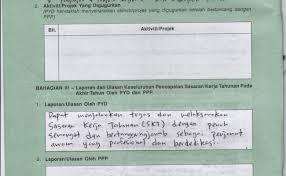 2. Aktiviti/Projek Yang Digugurkan
(PYD hendaklah menyenaraikan aktiviti/projek yang digugurkan setelah berbincang dengan PPP)
Bil. Aktiviti/Projek
BAHAGIAN III – Laporan dan Ulasan Keseluruhan Pencapaian Sasaran Kerja Tahunan Pada
Akhir Tahun Oleh PYD dan PPP
1. Laporan/Ulasan Oleh PYD
Dapat menjalankan tugas dan melaksanakan
Sasaran Kerja Tahunan (SKT) dengan penuh
semangat dan bertanggungjawab sebagai penjawat
awam yang profesional dan berdedikasi.
2. Laporan/Ulasan Oleh PPP